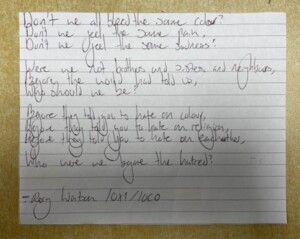 Don't we all bleed the same colour?
Don't we feel the same pain,
Don't we feel the same sadness?
Were we not brothers and sisters and neighbours,
Before the world had told us,
Who should we be?
Before they told you to hate on colour,
Before they told you to hate on religion,
Before they told you to hate on eachother,
Who were we before the hatred?